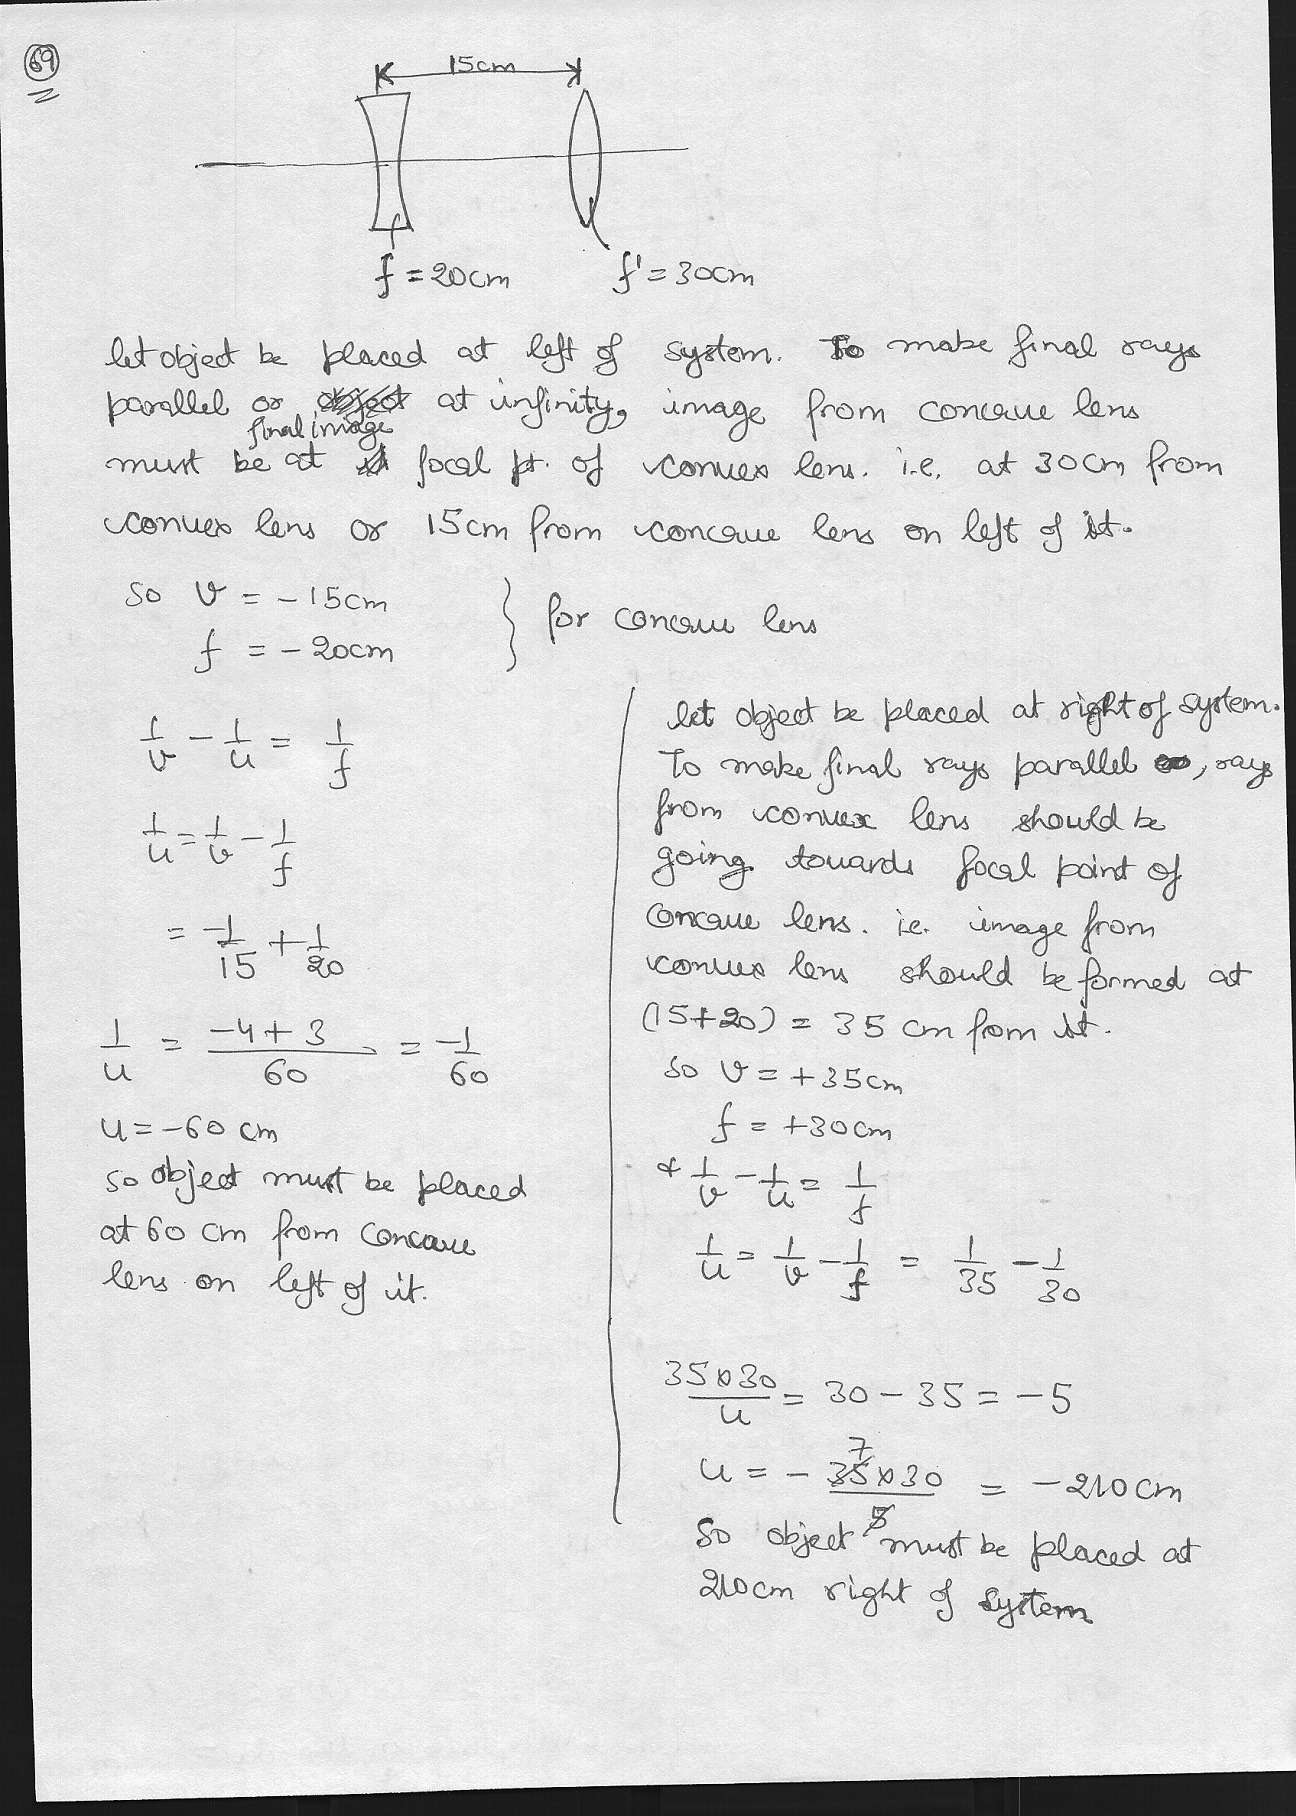 69
15cm
f = 20cm
f' = 30cm
let object be placed at left of system. To make final rays
parallel or final image at infinity, image from concave lens
must be at focal pt. of convex lens. i.e. at 30cm from
convex lens or 15cm from concave lens on left of it.
so v = -15cm
f = -20cm
} for concave lens
1/v - 1/u = 1/f
1/u = 1/v - 1/f
= -1/15 + 1/20
1/u = (-4+3)/60 = -1/60
u = -60 cm
so object must be placed
at 60 cm from concave
lens on left of it.
let object be placed at right of system.
To make final rays parallel, rays
from convex lens should be
going towards focal point of
concave lens. i.e. image from
convex lens should be formed at
(15+20) = 35 cm from it.
so v = +35cm
f = +30cm
& 1/v - 1/u = 1/f
1/u = 1/v - 1/f = 1/35 - 1/30
35×30/u = 30 - 35 = -5
u = - 35×30/5 = -210cm
7
so object must be placed at
210cm right of system